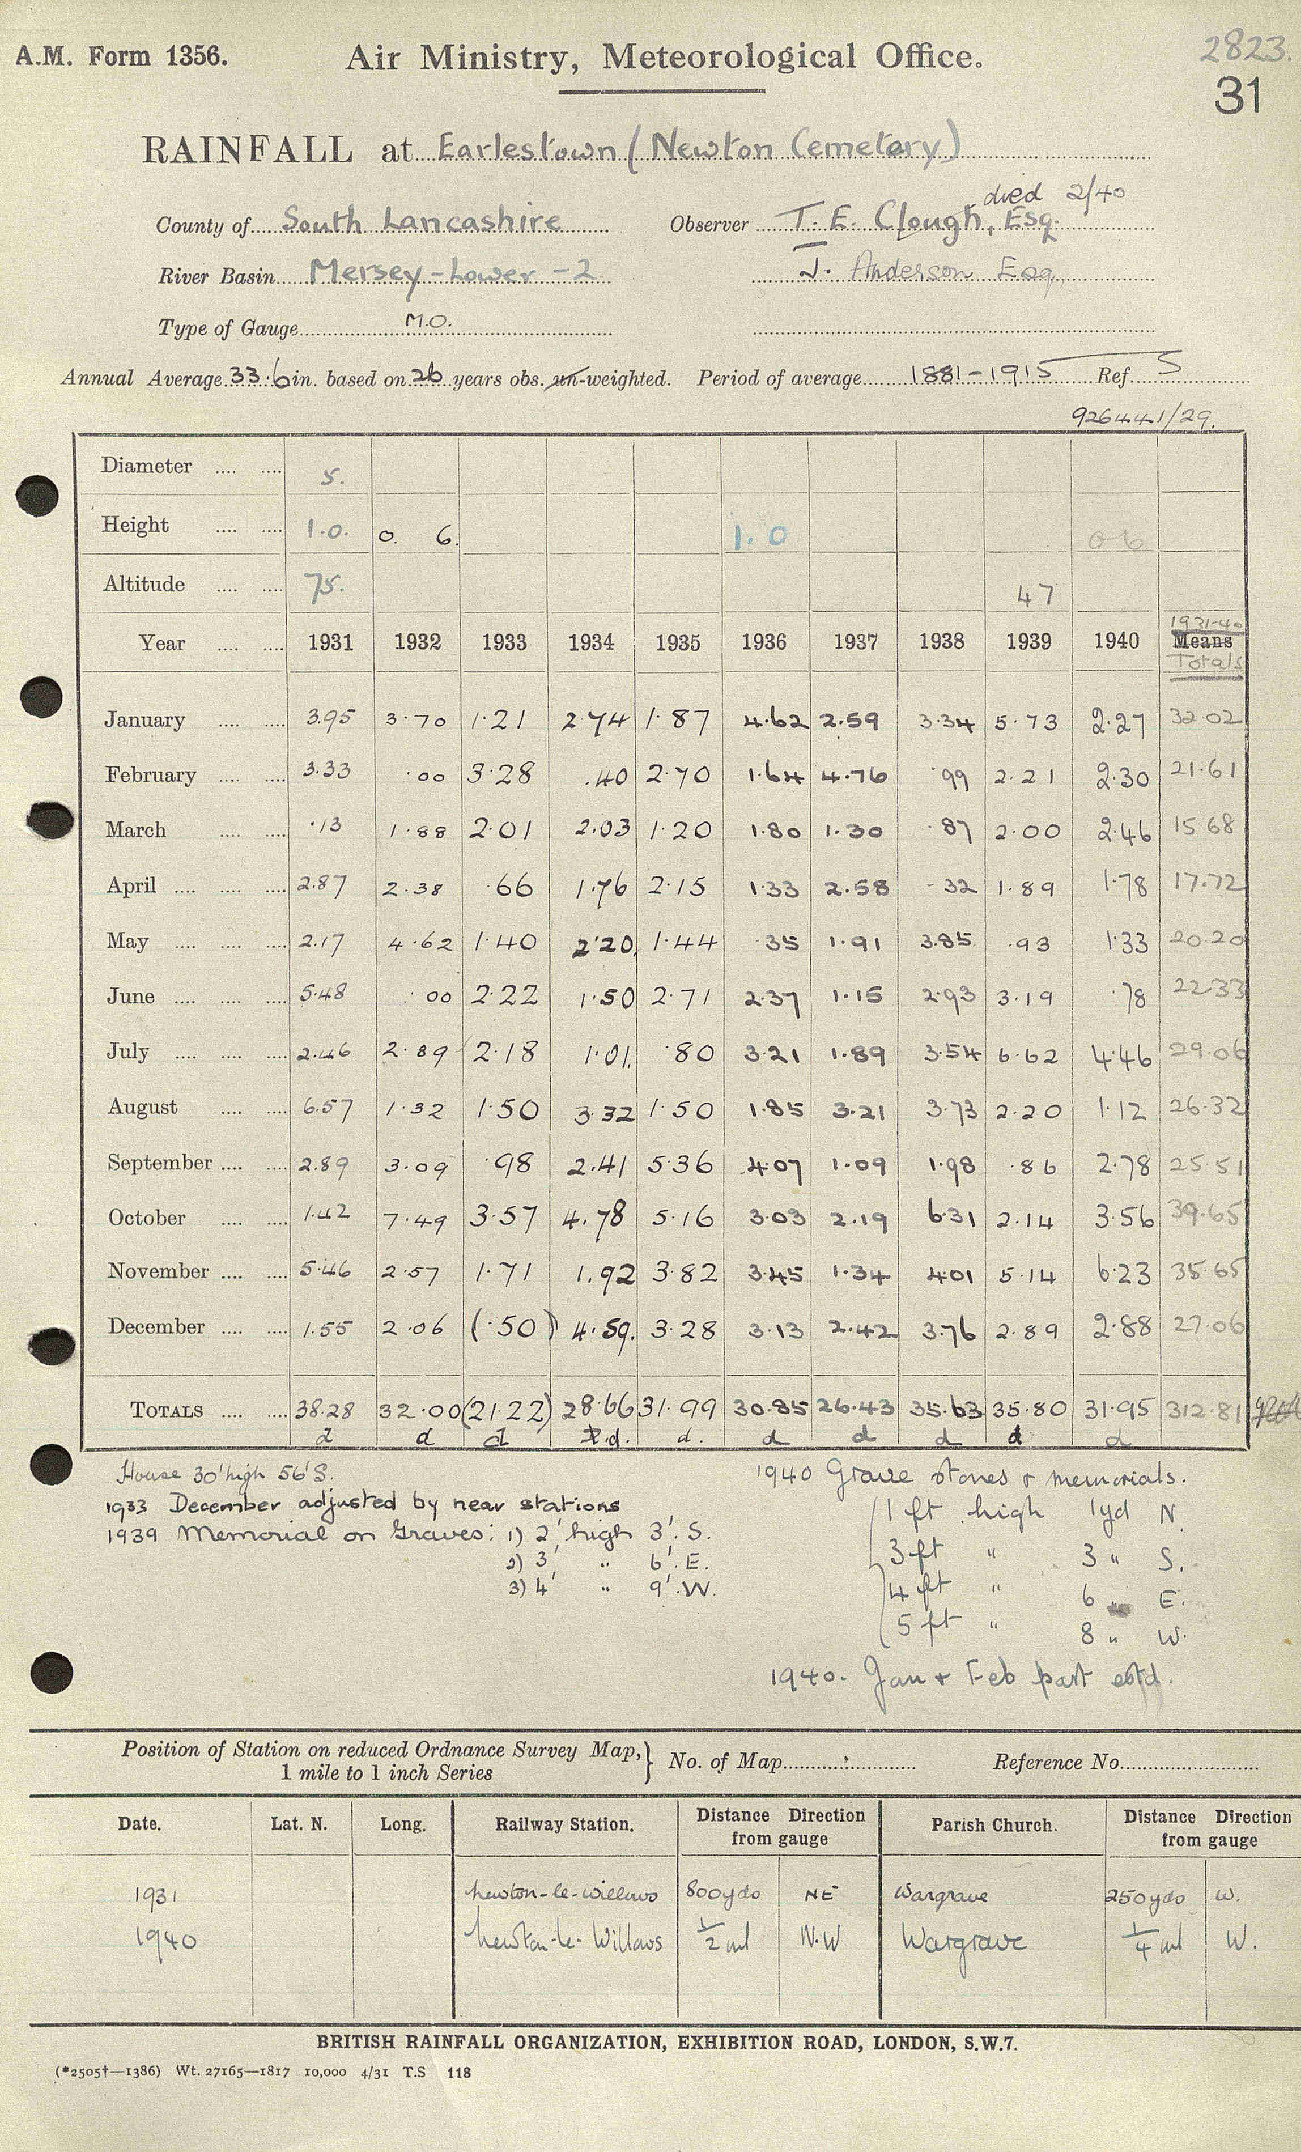 A.M. Form 1356. Air Ministry, Meteorological Office. 2823.
31
RAINFALL at Earlestown (Newton Cemetery)
died 2/40
County of South Lancashire Observer T. E. Clough, Esq.
River Basin Mersey-Lower-2 J. Anderson Esq.
Type of Gauge M.O.
Annual Average 33.6 in. based on 26 years obs. un-weighted. Period of average 1881-1915 Ref. 5
926441/29.
Diameter 5.
Height 1.0. 0. 6. 1.0 0 6
Altitude 75. 47
1931-40
Year 1931 1932 1933 1934 1935 1936 1937 1938 1939 1940 Means
Totals
January 3.95 3.70 1.21 2.74 1.87 4.62 2.59 3.34 5.73 2.27 32.02
February 3.33 .00 3.28 .40 2.70 1.64 4.76 .99 2.21 2.30 21.61
March .13 1.88 2.01 2.03 1.20 1.80 1.30 .87 2.00 2.46 15.68
April 2.87 2.38 .66 1.76 2.15 1.33 2.58 .32 1.89 1.78 17.72
May 2.17 4.62 1.40 2.20 1.44 .35 1.91 3.85 .93 1.33 20.20
June 5.48 .00 2.22 1.50 2.71 2.37 1.15 2.93 3.19 .78 22.33
July 2.46 2.89 2.18 1.01 .80 3.21 1.89 3.54 6.62 4.46 29.06
August 6.57 1.32 1.50 3.32 1.50 1.85 3.21 3.73 2.20 1.12 26.32
September 2.89 3.09 .98 2.41 5.36 4.07 1.09 1.98 .86 2.78 25.51
October 1.42 7.49 3.57 4.78 5.16 3.03 2.19 6.31 2.14 3.56 39.65
November 5.46 2.57 1.71 1.92 3.82 3.45 1.34 4.01 5.14 6.23 35.65
December 1.55 2.06 (.50) 4.59. 3.28 3.13 2.42 3.76 2.89 2.88 27.06
TOTALS 38.28 32.00 (21.22) 28.66 31.99 30.85 26.43 35.63 35.80 31.95 312.81
d d d d. d. d d d d d
House 30' high 56' S.
1933 December adjusted by near stations
1939 Memorial on Graves: 1) 2' high 3'. S.
2) 3' " 6'. E.
3) 4' " 9'. W.
1940 Grave stones + memorials.
1 ft high 1yd N.
3 ft " 3 " S.
4 ft " 6 " E.
5 ft " 8 " W.
1940. Jan + Feb part estd.
Position of Station on reduced Ordnance Survey Map, 1 mile to 1 inch Series } No. of Map Reference No.
Date. Lat. N. Long. Railway Station. Distance Direction from gauge Parish Church. Distance Direction from gauge
1931 Newton-le-willows 800yds NE Wargrave 250yds W.
1940 Newton-le-Willows 1/2 ml N.W Wargrave 1/4 ml W.
BRITISH RAINFALL ORGANIZATION, EXHIBITION ROAD, LONDON, S.W.7.
(*2505†—1386) Wt. 27165—1817 10,000 4/31 T.S 118